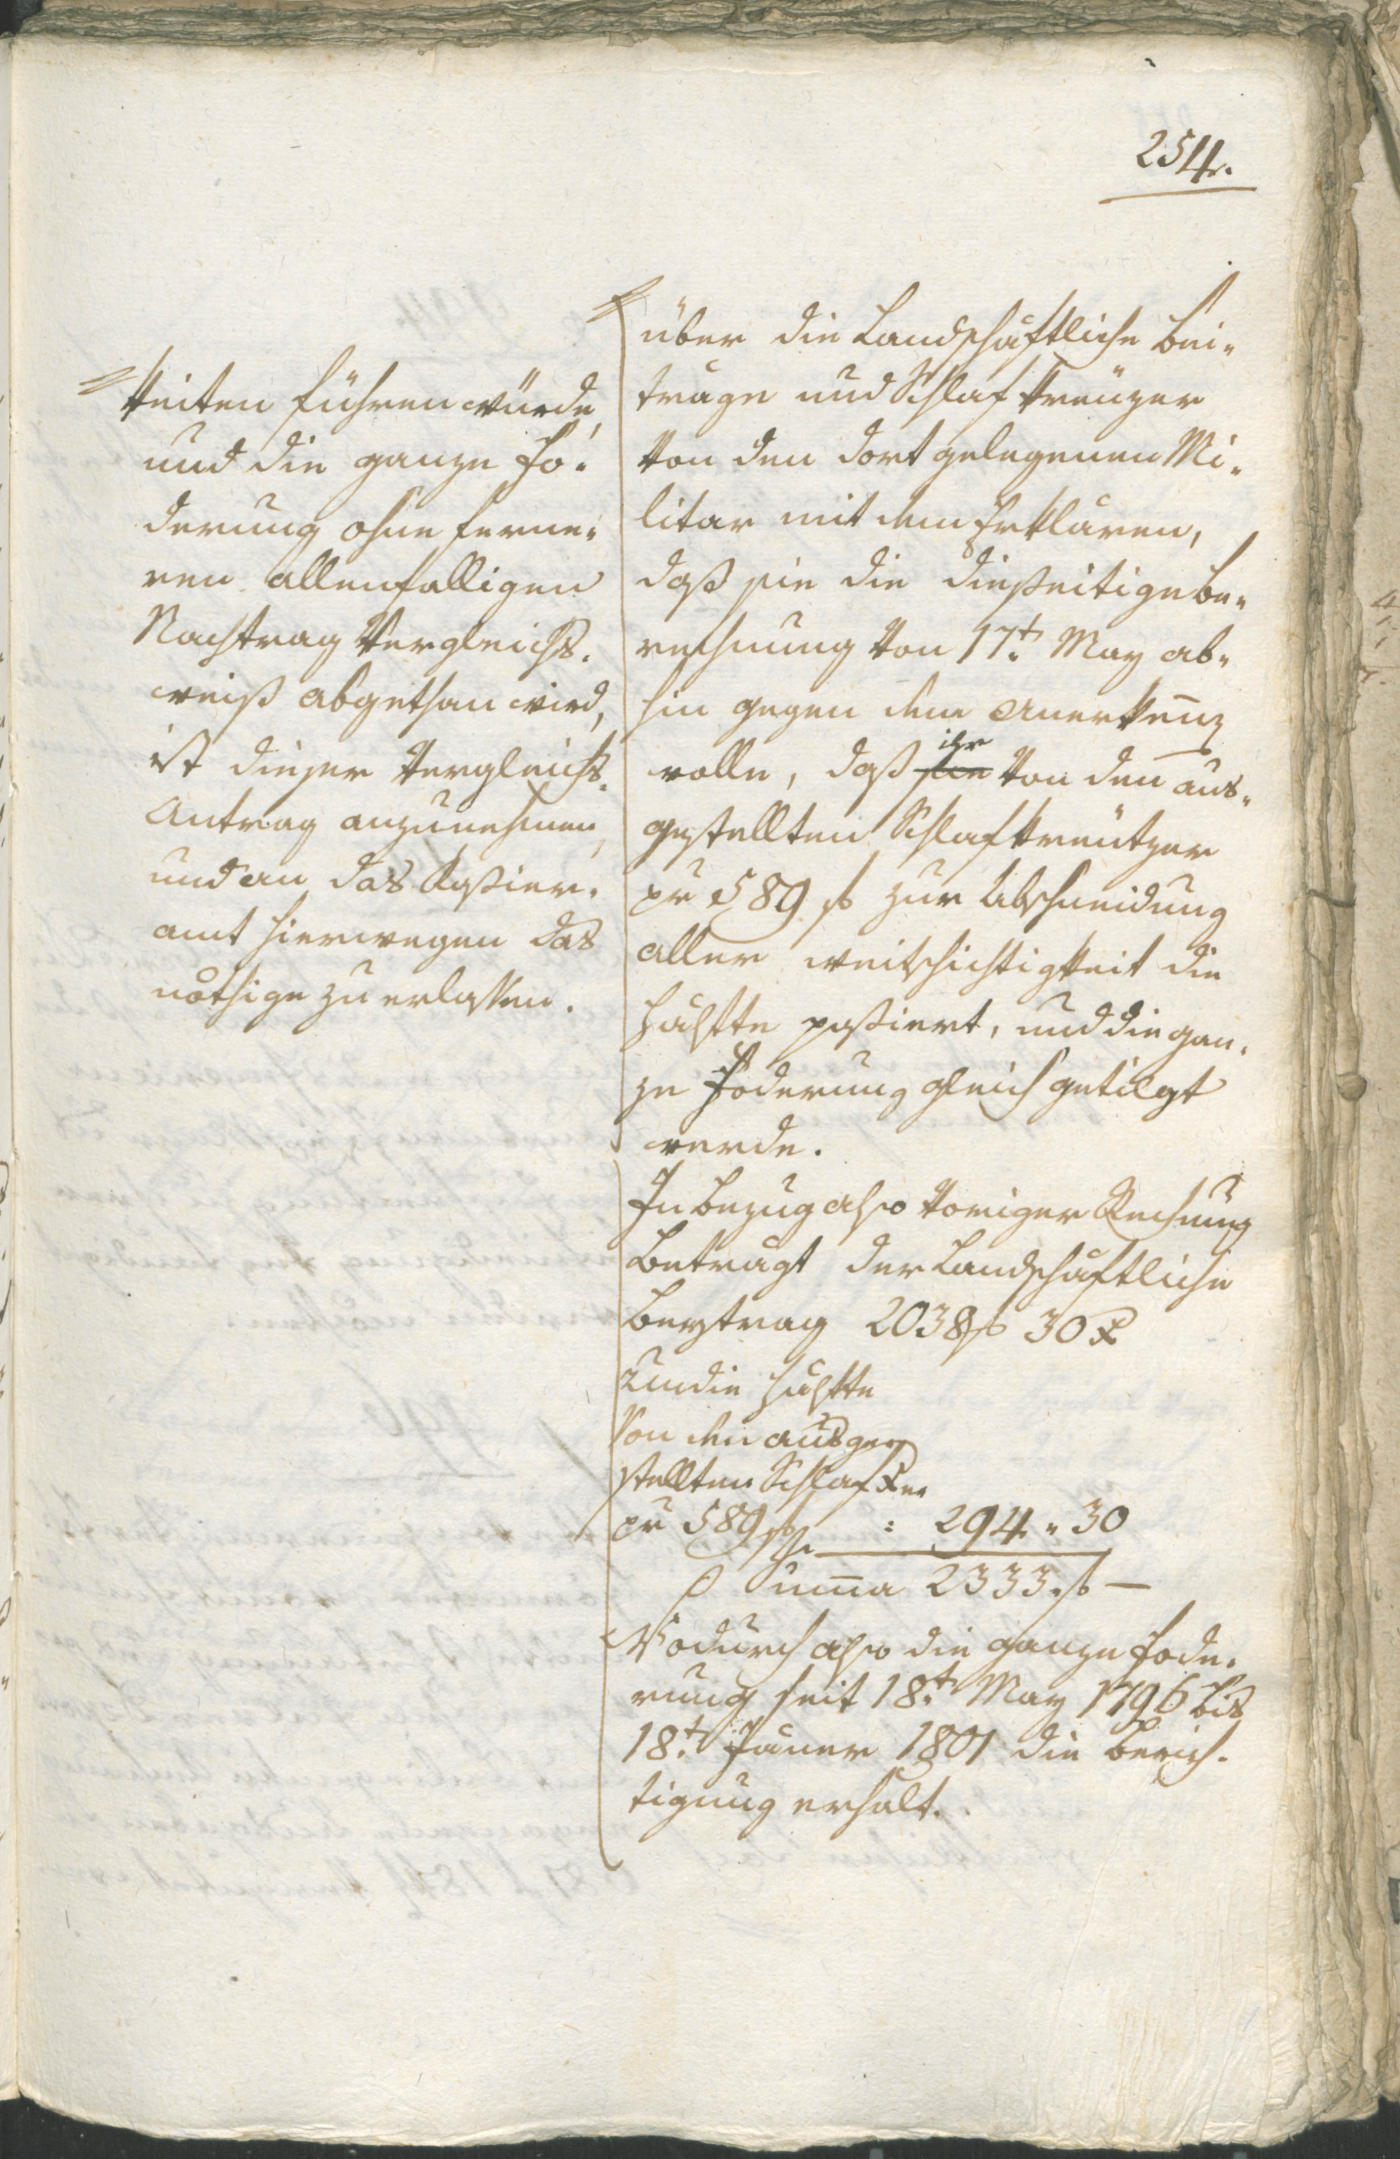 254.
keiten führen würde,
und die ganze Fo-
derung ohne ferne-
ren allenfalligen
Nachtrag Vergleichs-
weiß abgethan wird,
ist dieser Vergleichs-
Antrag anzunehmen,
und an das Kaßier-
amt hierwegen das
nöthige zu erlassen.
über die Landschäftliche Bei-
träge und Schlafkreuzer
von den dort gelegenen Mi-
litar mit dem Erklären,
daß sie die dießeitige Be-
rechnung von 17t. May ab-
hin gegen dem anerkenn
wolle, daß sie ihr von den aus-
gestellten Schlafkreützer
pr 589 f zur Abschneidung
aller weitschichtigkeit die
Hälfte paßiert, und die gan-
ze Foderung gleich getilgt
werde.
In bezug also voriger Rechnung
Beträgt der Landschäftliche
Beytrag 2038 f 30 x
Um die Hälfte
Von den ausge-
stellten Schlaf xer
pr 589 f : 294 " 30
Summa 2333 f —
Wodurch also die ganze Fode-
rung seit 18t. May 1796 bis
18t. Jäner 1801 die Berich-
tigung erhält.